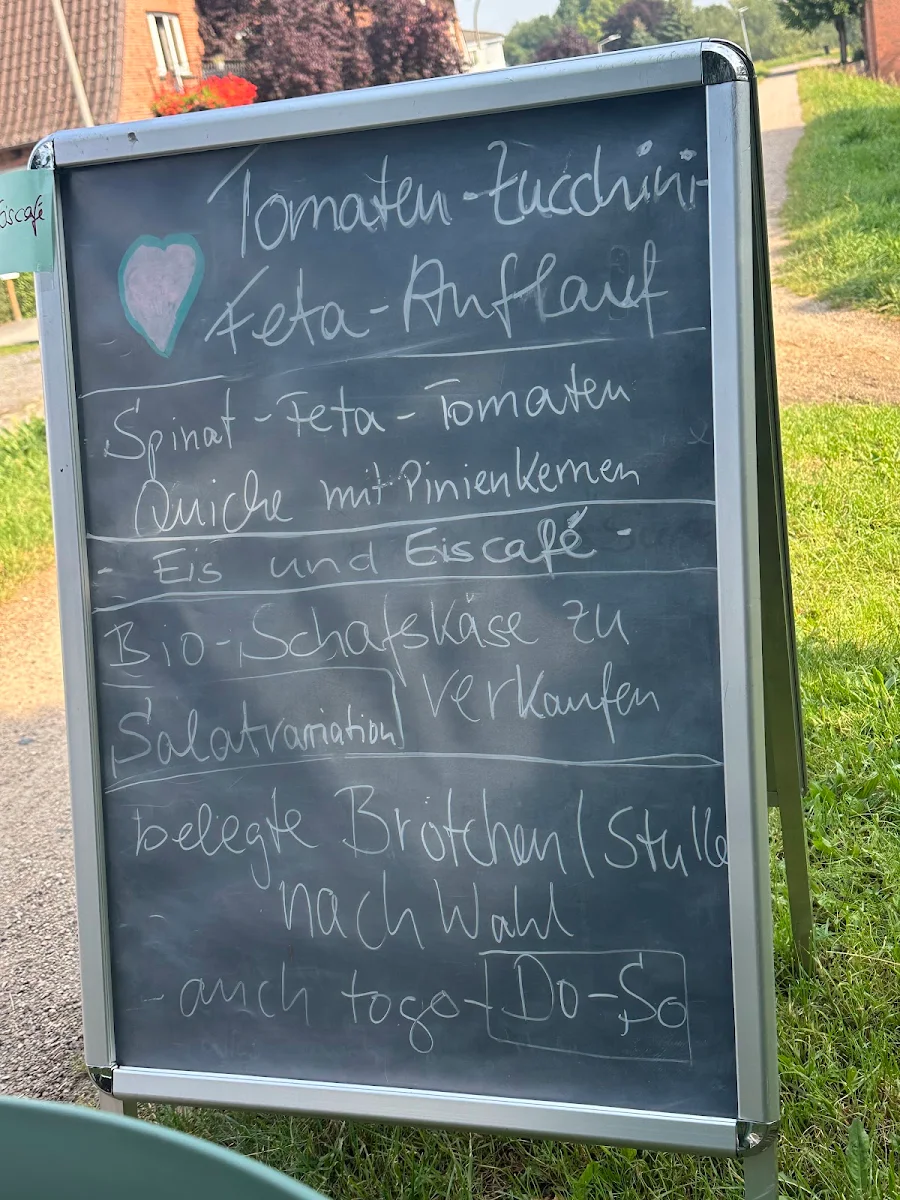 Tomaten-Zucchini-
Feta-Auflauf
Spinat-Feta-Tomaten
Quiche mit Pinienkernen
- Eis und Eiscafé -
Bio-Schafskäse zu
verkaufen
Salatvariation
belegte Brötchen/Stulle
nach Wahl
- auch togo - Do-So
Eiscafé